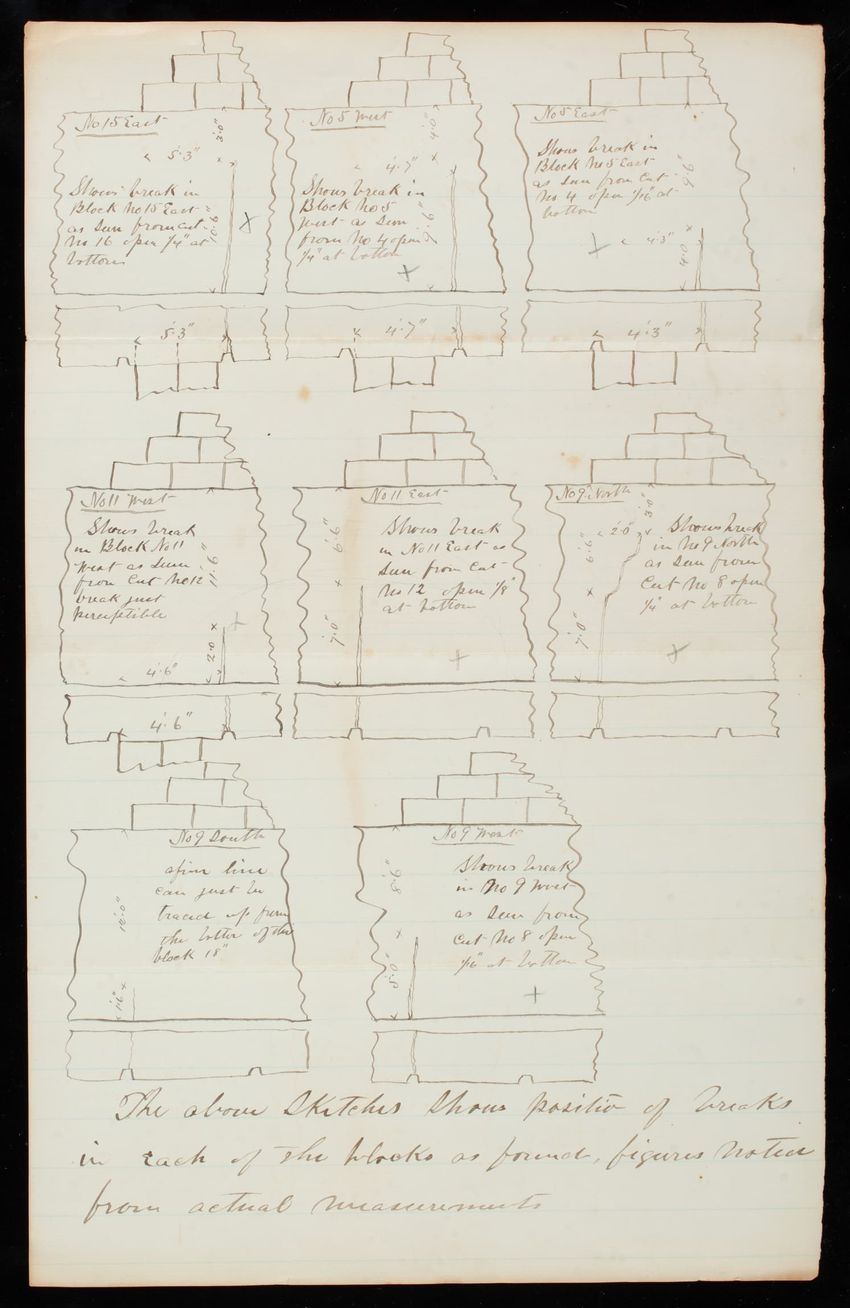 No 15 East
3'.0"
5'.3"
Shows break in
Block No 15 East
as seen from cut
No 16 open 1/4" at
bottom
5'.3"
No 5 West
4'.0"
4'.7"
Shows break in
Block No 5
West as seen
from No 4 open
1/4" at bottom
4'.7"
No 5 East
Shows break in
Block No 5 East
as seen from Cut
No 4 open 1/16" at
bottom
4'.3"
4'.0"
4'.3"
No 11 West
Shows break
in Block No 11
West as seen
from Cut No 12
break just
perceptible
11'.6"
2'.0
4'.6"
4'.6"
No 11 East
6'.6"
7'.0"
Shows break
in No 11 East as
seen from Cut
No 12 open 1/8"
at bottom
No 9 North
3'.0"
2'.0"
6'.0"
7'.0"
Shows break
in No 9 North
as seen from
Cut No 8 open
1/4" at bottom
No 9 South
a fine line
can just be
traced up from
the bottom of the
block 18"
12'.0"
1'.6"
No 9 West
8'.6"
5'.0"
Shows break
in No 9 West
as seen from
Cut No 8 open
at bottom
The above Sketches Shows position of breaks
in Each of the blocks as found, figures noted
from actual measurements